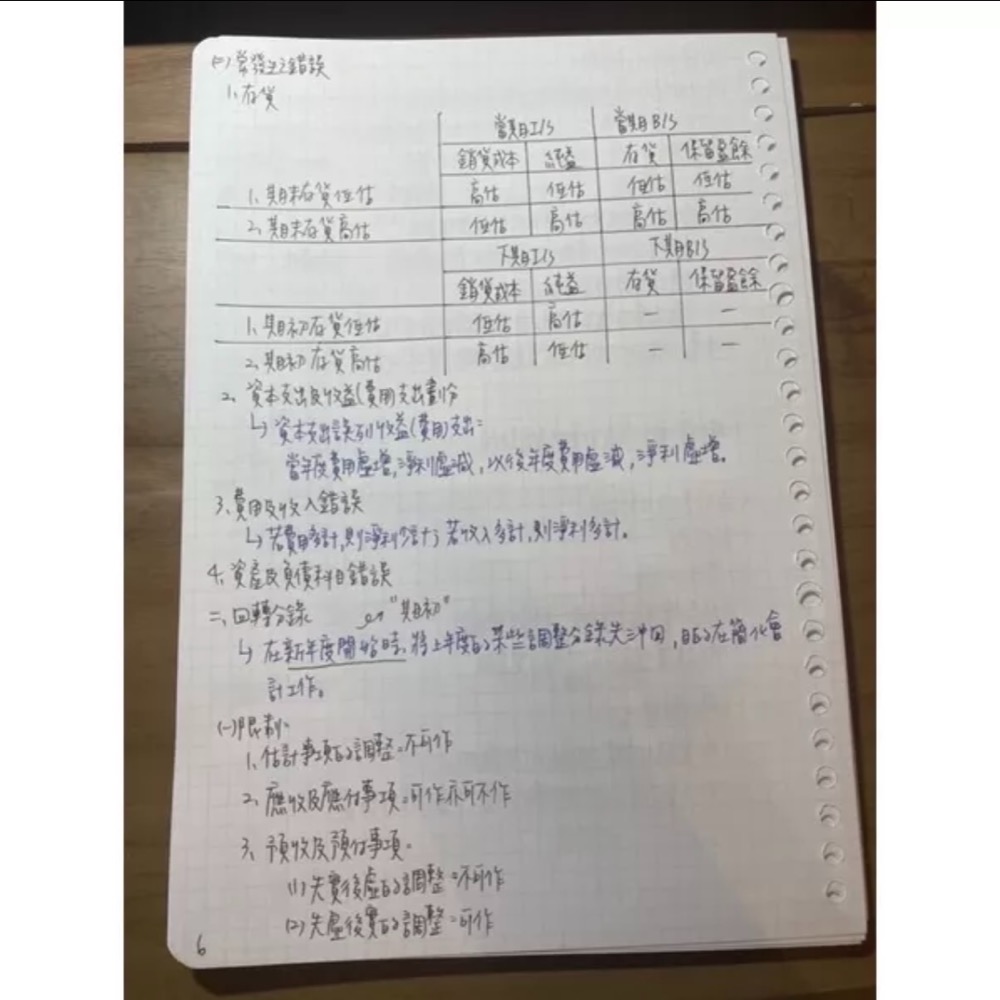 (二)常發生之錯誤
1、存貨
當期I/S 當期B/S
銷貨成本 純益 存貨 保留盈餘
1、期末存貨低估 高估 低估 低估 低估
2、期末存貨高估 低估 高估 高估 高估
下期I/S 下期B/S
銷貨成本 純益 存貨 保留盈餘
1、期初存貨低估 低估 高估 — —
2、期初存貨高估 高估 低估 — —
2、資本支出及收益(費用)支出劃分
↳資本支出誤列收益(費用)支出:
當年度費用虛增,淨利虛減,以後年度費用虛減,淨利虛增。
3、費用及收入錯誤
↳若費用多計,則淨利少計;若收入多計,則淨利多計。
4、資產及負債科目錯誤
二、回轉分錄 "期初"
↳在新年度開始時,將上年度的某些調整分錄先沖回,目的在簡化會
計工作。
(一)限制:
1、估計事項的調整:不可作
2、應收及應付事項:可作亦可不作
3、預收及預付事項:
(1)先實後虛的調整:不可作
(2)先虛後實的調整:可作
6